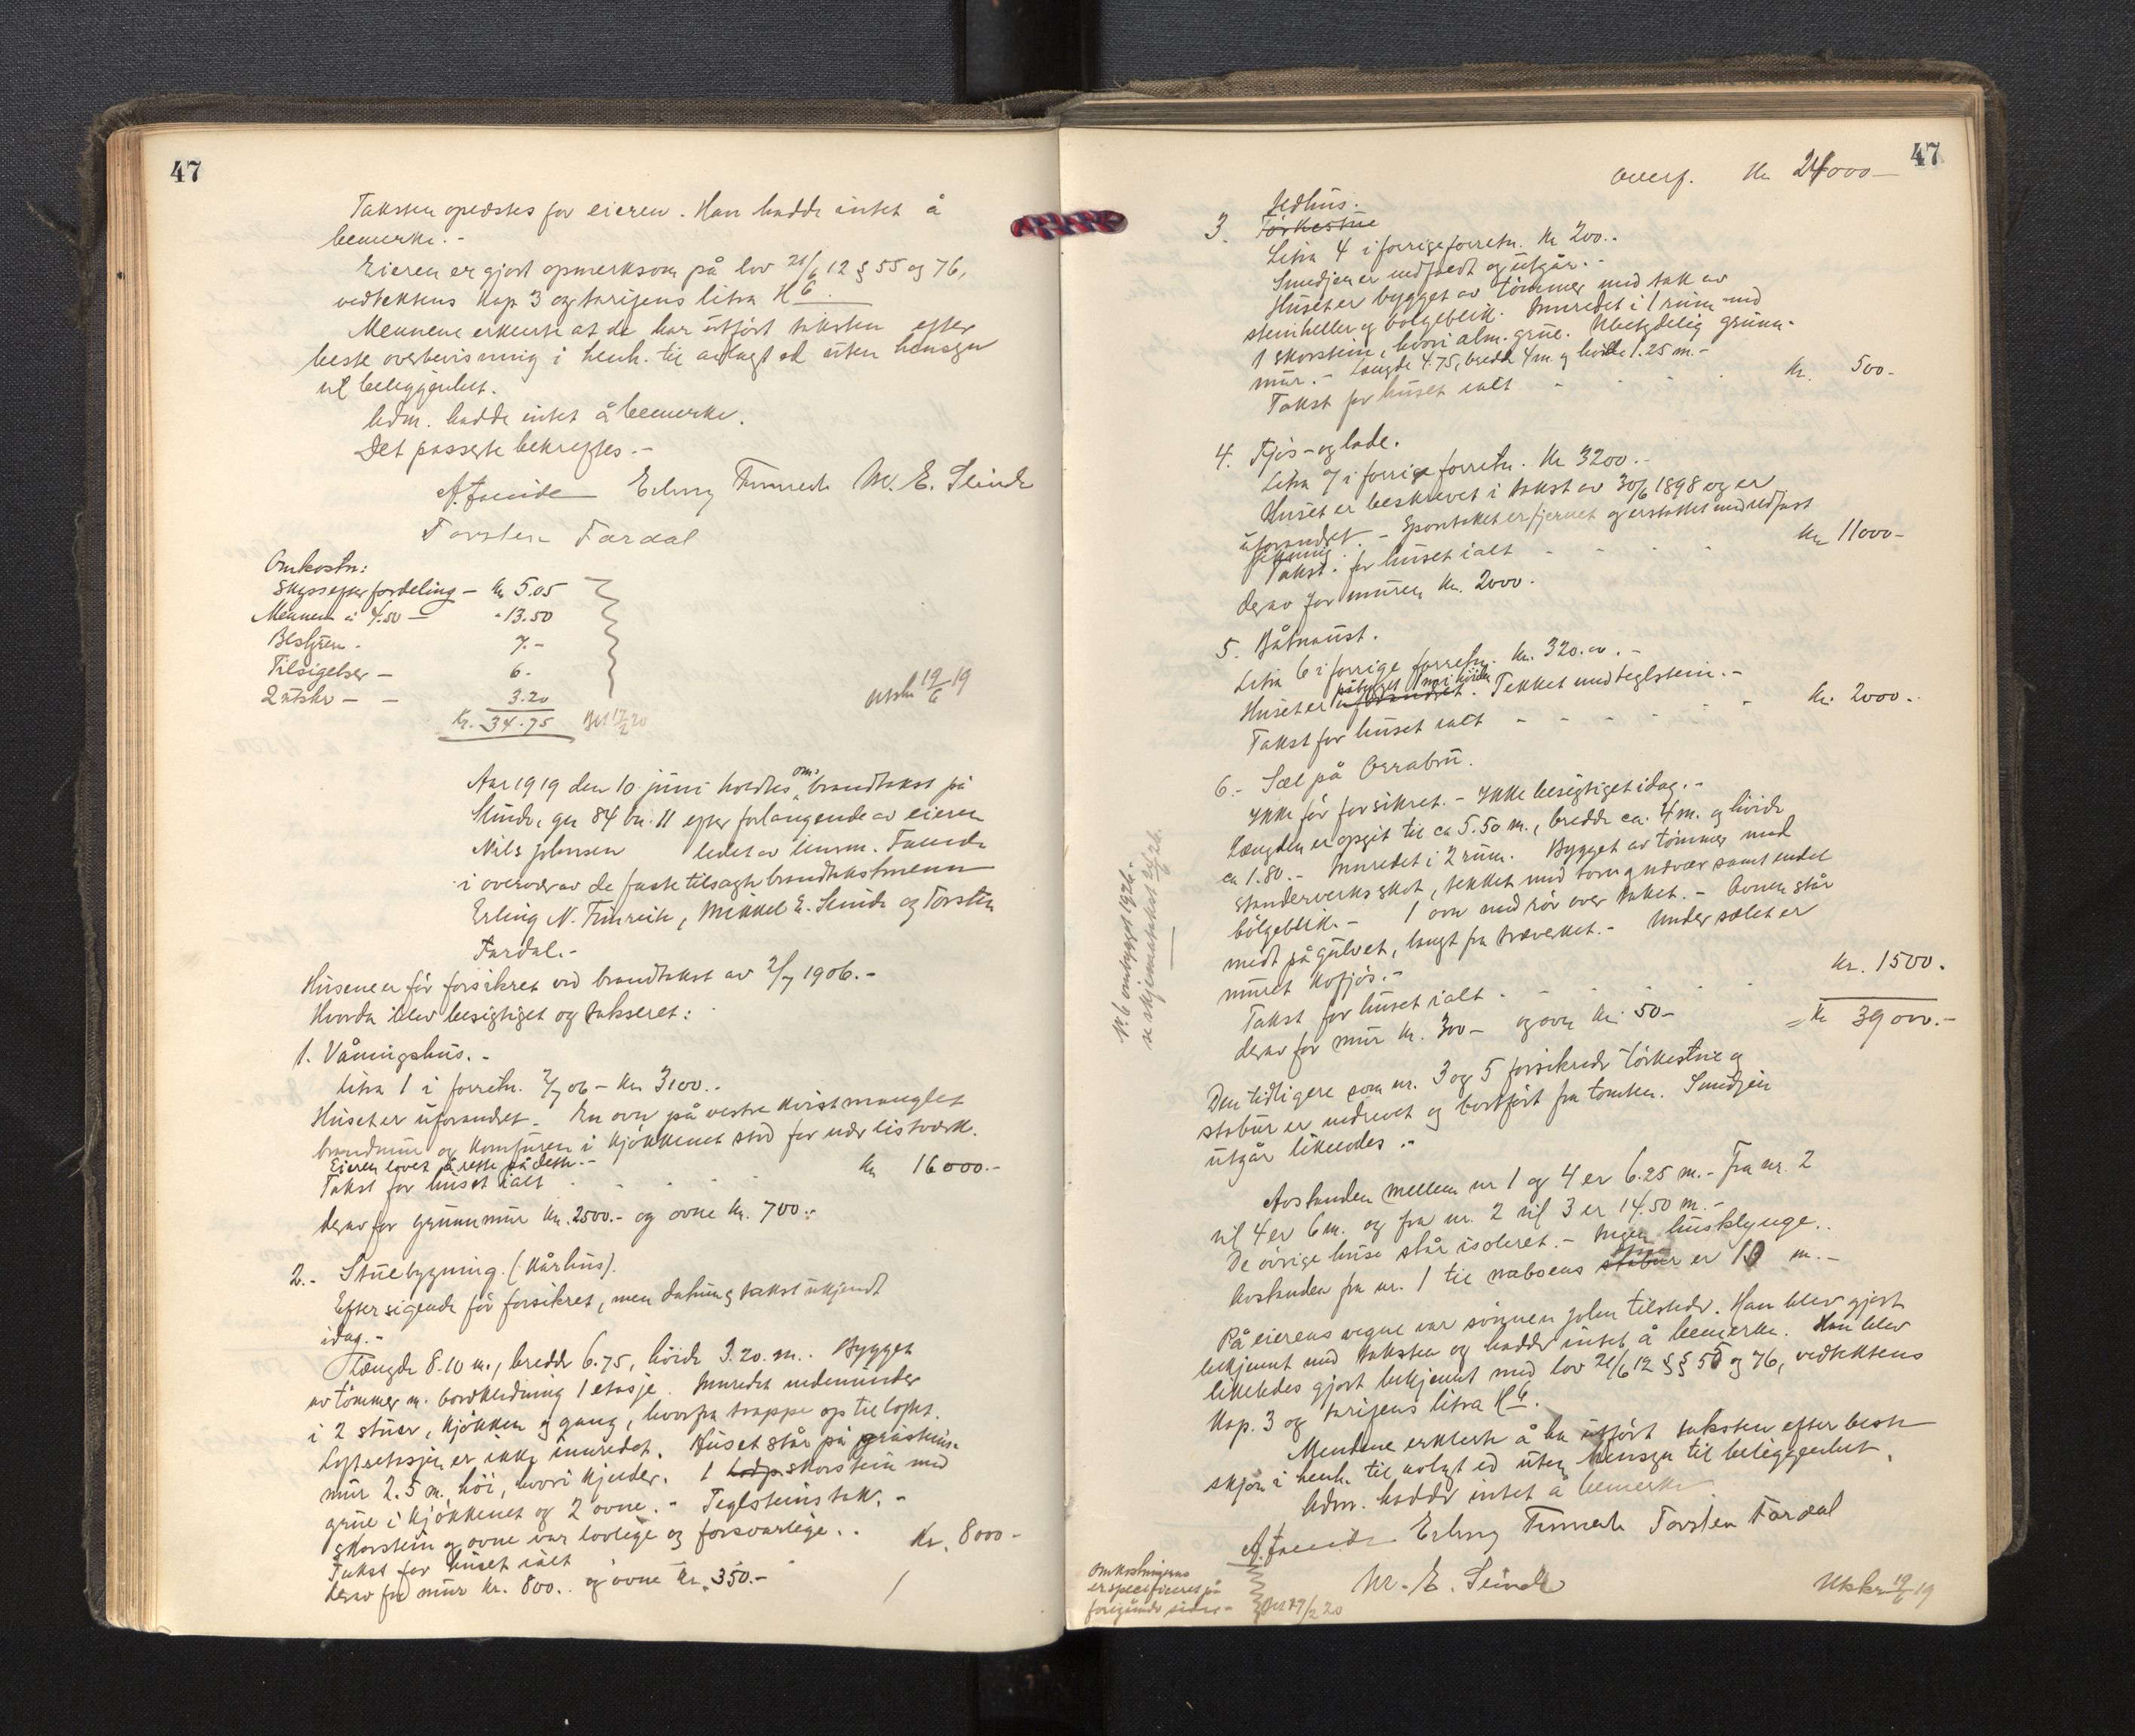 47
Taksten oplæstes for eieren. Han hadde intet å
bemerke.-
Eieren er gjort opmerksom på lov 21/6 12 § 55 og 76,
vedtektens kap 3 og tarifens litra H 6.
Mennene erklærte at de har utført taksten efter
beste overbevisning i henh. til avlagt ed uten hensyn
til beliggenhet.
Adm. hadde intet å bemerke.
Det passerte bekreftes.-
Erling Timreite M. E. Slinde
Torsten Fardal
Omkostn:
Skyss efter fordeling - kr 5.05
Mennene à 4.50 - - 13.50
Bestyren - 7.-
Tilsigelser - 6.-
2 utskr - - 3.20
Kr. 34.75 Bet 17/2 20
Utskr 19/6 19
Aar 1919 den 10 juni holdtes om- brandtakst på
Slinde, gn 84 bn. 11 efter forlangende av eieren
Nils Johnsen ledet av lensm.
i overvær av de faste tilsagte brandtakstmenn
Erling N. Timreite, Mikkel E. Slinde og Torsten
Fardal.-
Husene er før forsikret ved brandtakst av 2/7 1906.-
Hvorda blev besigtiget og takseret:
1. Våningshus.-
Litra 1 i forretn. 2/7 06 - kr. 3100..
Huset er uforandret - En ovn på vestre kvist manglet
brandmur og komfuren i kjøkkenet stod for nær listværk.
Eieren lovet å rette på dette.-
Takst for huset ialt - - - kr 16000.-
derav for grunnmur kr. 2500.- og ovne kr. 700.-
2.- Stuebygning. (Kårhus).
Efter sigende før forsikret, men datum og takst ukjendt
idag.-
Længde 8.10 m., bredde 6.75, høide 3.20. m.. Bygget
av tømmer m. bordklædning 1 etasje. Innredet nedenunder
i 2 stuer, kjøkken og gang, hvorfra trappe op til loftet.
Loftsetasjen er ikke innredet. Huset står på gråsteins-
mur 2.5 m. høi, hvori kjelder. 1 skorstein med
grue i kjøkkenet og 2 ovne.- Teglsteinstak.-
Skorstein og ovne var lovlige og forsvarlige..
Takst for huset ialt Kr. 8000-
derav for mur kr. 800.. og ovne kr. 350.-
47
Overf. Kr 24000-
Vedhus.
3. Tørkestue
Litra 4 i forrige forretn. kr 200..
Smedjen er nedfaldt og utgår.-
Huset er bygget av tømmer med tak av
steinheller og bølgeblik. Innredet i 1 rum med
1 skorstein, hvori alm. grue. Ubetydelig grunn-
mur.- Længde 4.75, bredde 4 m. og høide 1.25 m.-
Takst for huset ialt - - - kr. 500-
4. Fjøs- og lade.
Litra 7 i forrige forretn. Kr 3200.-
Huset er beskrevet i takst av 30/6 1898 og er
uforandret.- Spontaket er fjernet og erstattet med ildfast
tekning.
Takst for huset ialt - - - Kr 11000-
derav for muren Kr. 2000.
5. Båtnaust.
Litra 6 i forrige forretn. kr. 320.00.-
Huset er uforandret påbygget 1 m i høiden. Tekket med teglstein.-
Takst for huset ialt - - - - - Kr. 2000.-
6.- Sæl på Orrabu.
Ikke før forsikret.- Ikke besigtiget idag.-
Længden er opgit til ca 5.50 m., bredde ca. 4 m. og høide
ca 1.80.- Innredet i 2 rum. Bygget av tømmer med
standerverksskot, tekket med torv og nævær samt endel
bølgeblik.- 1 ovn med rør over taket.- Ovnen står
midt på gulvet, langt fra træverket.- Under sælet er
muret kofjøs.-
Takst for huset ialt - - - - Kr. 1500.
derav for mur kr. 300- og ovn kr. 50-
= Kr 39000.-
Nr. 6 ombygget 1926.
se skjemataksten
Den tidligere som nr. 3 og 5 forsikrede tørkestue og
stabur er nedrevet og bortført fra tomten. Smedjen
utgår likeledes.-
Avstanden mellem nr 1 og 4 er 6.25 m.- Fra nr. 2
til 4 er 6 m. og fra nr. 2 til 3 er 14.50 m.-
De øvrige huse står isoleret.- Ingen husklynge..
Avstanden fra nr. 1 til naboens stabur er 10 m.-
På eierens vegne var sønnen John tilstede. Han blev gjort
bekjennt med taksten og hadde intet å bemerke. Han blev
likeledes gjort bekjennt med lov 21/6 12 §§ 55 og 76, vedtektens
Kap. 3 og tarifens litra H 6.
Mennene erklærte å ha utført taksten efter beste
skjøn i henh. til avlagt ed uten hensyn til beliggenhet.
Adm. hadde intet å bemerke.
Erling Timreite Torsten Fardal
M. E. Slinde
Omkostningene
er specificeret på
foregående side.- Bet 17/2 20
Utskr 19/6 19